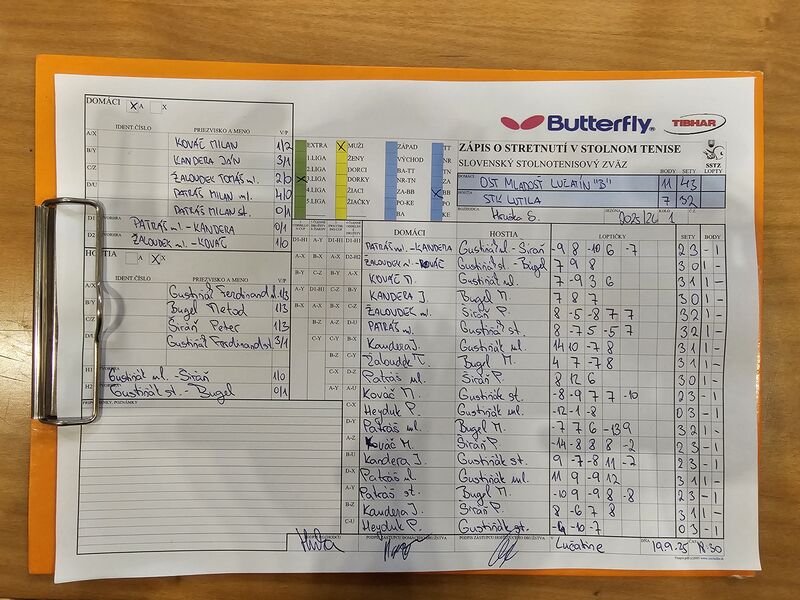 DOMÁCI X A X
Butterfly
TIBHAR
IDENT.ČÍSLO PRIEZVISKO A MENO V/P
ZÁPIS O STRETNUTÍ V STOLNOM TENISE
SLOVENSKÝ STOLNOTENISOVÝ ZVÄZ
SSTZ
BODY SETY LOPTY
DOMÁCI OST MLADOSŤ LUČATÍN "B" 11 43
HOSTIA STK LUTILA 7 32
A/X KOVÁČ MILAN 1/2
B/Y KANDERA JÁN 3/1
C/Z ŽALOUDEK TOMÁŠ ml. 2/0
D/U PATRÁŠ MILAN ml. 4/0
PATRÁŠ MILAN st. 0/1
D1 PATRÁŠ - KANDERA 0/1
D2 ŽALOUDEK ml. - KOVÁČ 1/0
EXTRA X MUŽI ZÁPAD TT
1.LIGA ŽENY VÝCHOD NR
2.LIGA DORCI BA-TT TN
X 3.LIGA DORKY NR-TN ZA
4.LIGA ŽIACI ZA-BB X BB
5.LIGA ŽIAČKY PO-KE PO
BA KE
HOSTIA A X X
IDENT.ČÍSLO PRIEZVISKO A MENO V/P
A/X Gustiňák Ferdinand ml. 1/3
B/Y Bugel Metod 1/3
C/Z Širáň Peter 1/3
D/U Gustiňák Ferdinand st. 3/1
H1 Gustiňák ml. - Širáň 1/0
H2 Gustiňák st. - Bugel 0/1
PRIPOMIENKY, POZNÁMKY
DOMÁCI HOSTIA LOPTIČKY SETY BODY
PATRÁŠ ml. - KANDERA Gustiňák ml. - Širáň -9 8 -10 6 -7 2 3 - 1
ŽALOUDEK ml. - KOVÁČ Gustiňák st. - Bugel 7 9 8 3 0 1 -
KOVÁČ M. Gustiňák ml. 7 -9 3 6 3 1 1 -
KANDERA J. Bugel M. 7 8 7 3 0 1 -
ŽALOUDEK ml. Širáň P. 8 -5 -8 7 7 3 2 1 -
PATRÁŠ ml. Gustiňák st. 8 -7 5 -5 7 3 2 1 -
Kandera J. Gustiňák ml. 14 10 -7 8 3 1 1 -
Žaloudek T. Bugel M. 4 7 -7 8 3 1 1 -
Patráš ml. Širáň P. 8 12 6 3 0 1 -
Kováč M. Gustiňák st. -8 -9 7 7 -10 2 3 - 1
Heyduk P. Gustiňák ml. -12 -1 -8 0 3 - 1
Patráš ml. Bugel M. -7 7 6 -13 9 3 2 1 -
Kováč M. Širáň P. -14 -8 8 8 -2 2 3 - 1
Kandera J. Gustiňák st. 9 -7 -8 11 -7 2 3 - 1
Patráš ml. Gustiňák ml. 11 9 -9 12 3 1 1 -
Patráš st. Bugel M. -10 9 -9 8 -8 2 3 - 1
Kandera J. Širáň P. 8 -6 7 8 3 1 1 -
Heyduk P. Gustiňák st. -10 -7 0 3 - 1
PODPIS ZÁSTUPCU DOMÁCEHO DRUŽSTVA PODPIS ZÁSTUPCU HOSŤUJÚCEHO DRUŽSTVA V Lučatíne DŇA 19.9.25